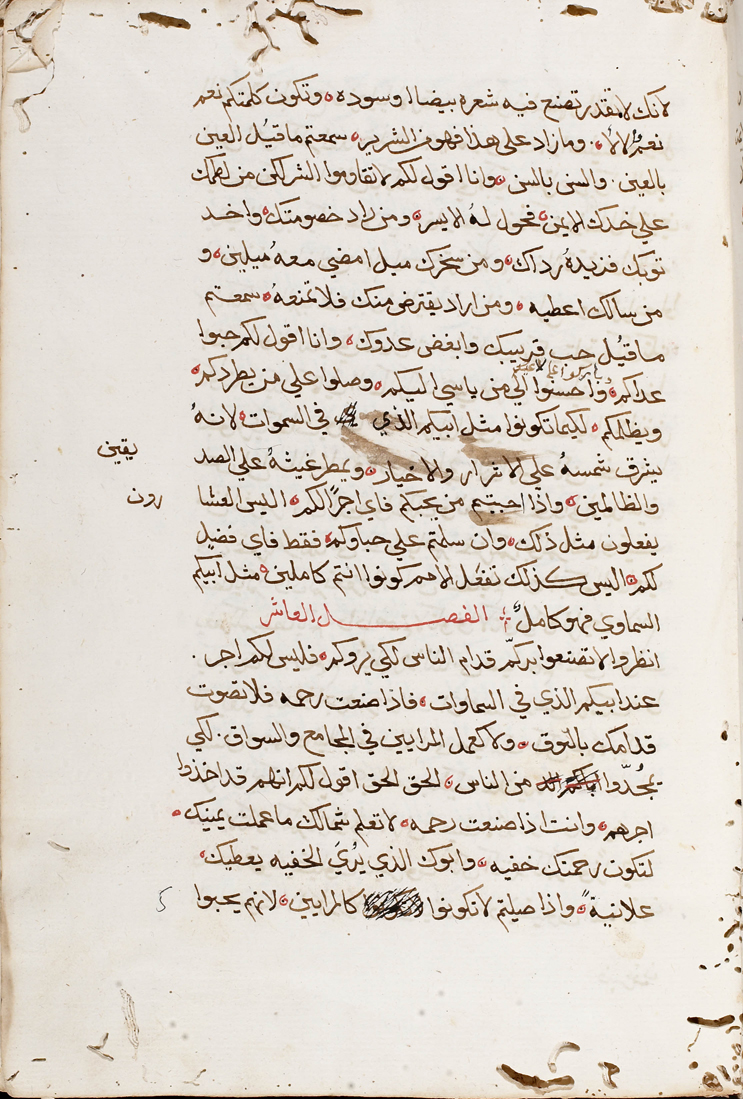 لانك لا تقدر تصنع فيه شعره بيضاا وسوده ۰ وتكون كلمتكم نعم
نعم ولالا ۰ ومازاد على هذا فهو من الشرير ۰ سمعتم ماقيل العين
بالعين ۰ والسن بالسن ۰ وانا اقول لكم لا تقاوموا الشر لكن من لطمك
على خدك الايمن ۰ فحول له الايسر ۰ ومن راد خصومتك ۰ واخد
توبك فزيده رداك ۰ ومن سخرك ميل امضي معه ميلين ۰ و
من سالك اعطيه ۰ ومن اراد يقترض منك فلا تمنعه ۰ سمعتم
ماقيل حب قريبك وابغض عدوك ۰ وانا اقول لكم حبوا
باركوا على لاعنيكم
عداكم ۰ واحسنوا الي من ياسي اليكم ۰ وصلوا علي من يطردكم ۰
ويظلمكم ۰ لكيما تكونوا مثل ابيكم الذي في السموات ۰ لانه
يشرق شمسه على الاشرار والاخيار ۰ ويمطر غيثه على الصد
يقين
والظالمين ۰ واذا احببتم من يحبكم فاي اجرا لكم ۰ اليس العشا
رون
يفعلون مثل ذلك ۰ وان سلمتم علي حباوكم ۰ فقط فاي فضيل
لكم ۰ اليس كذلك تفعل الامم كونوا انتم كاملين ۰ مثل ابيكم
السماوي فهو كامل ۰ الفصل العاشر
انظروا لا تصنعوا بركم قدام الناس لكي يروكم ۰ فليس لكم اجر ۰
عند ابيكم الذي في السماوات ۰ فاذا صنعت رحمه فلا تصوت
قدامك بالبوق ۰ ولا كعمل المرايين في المجامع والسواق ۰ لكي
يمجدوا من الناس ۰ الحق الحق اقول لكم انهم قد اخذوا
اجرهم ۰ وانت اذا صنعت رحمه ۰ لا تعلم شمالك ماعملت يمينك ۰
لتكون رحمتك خفيه ۰ وابوك الذي يري الخفيه يعطيك ۰
علانية ۰ واذا صليتم لا تكونوا كالمرايين ۰ لانهم يحبوا